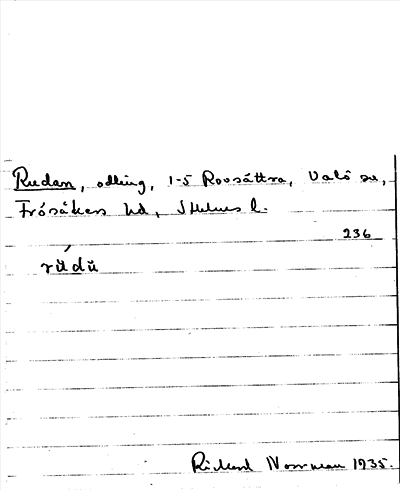 Rudan, odling, 1-5 Rovsättra, Valö sn,
Frösåkers hd, Sthlms l.
236
rúdu
Rickard Norrman 1935.